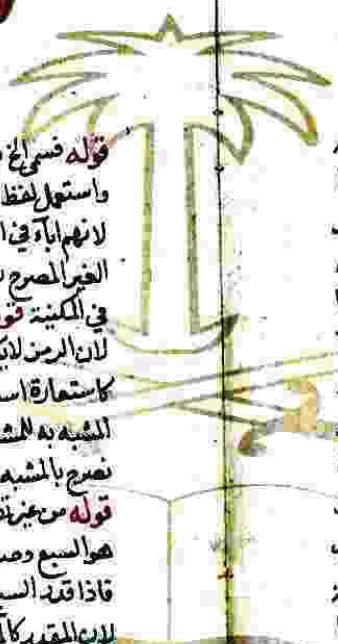 قوله فسمى الخ
واستعمل لفظ
لانهم اباه في ا
الغير المصرح
في المكنية قو
لان الرمز لا
كاستعارة اس
المشبه به للمش
نصرح بالمشبه
قوله من غير تق
هو السبع وص
فاذا قدر السب
لان المقدر كا